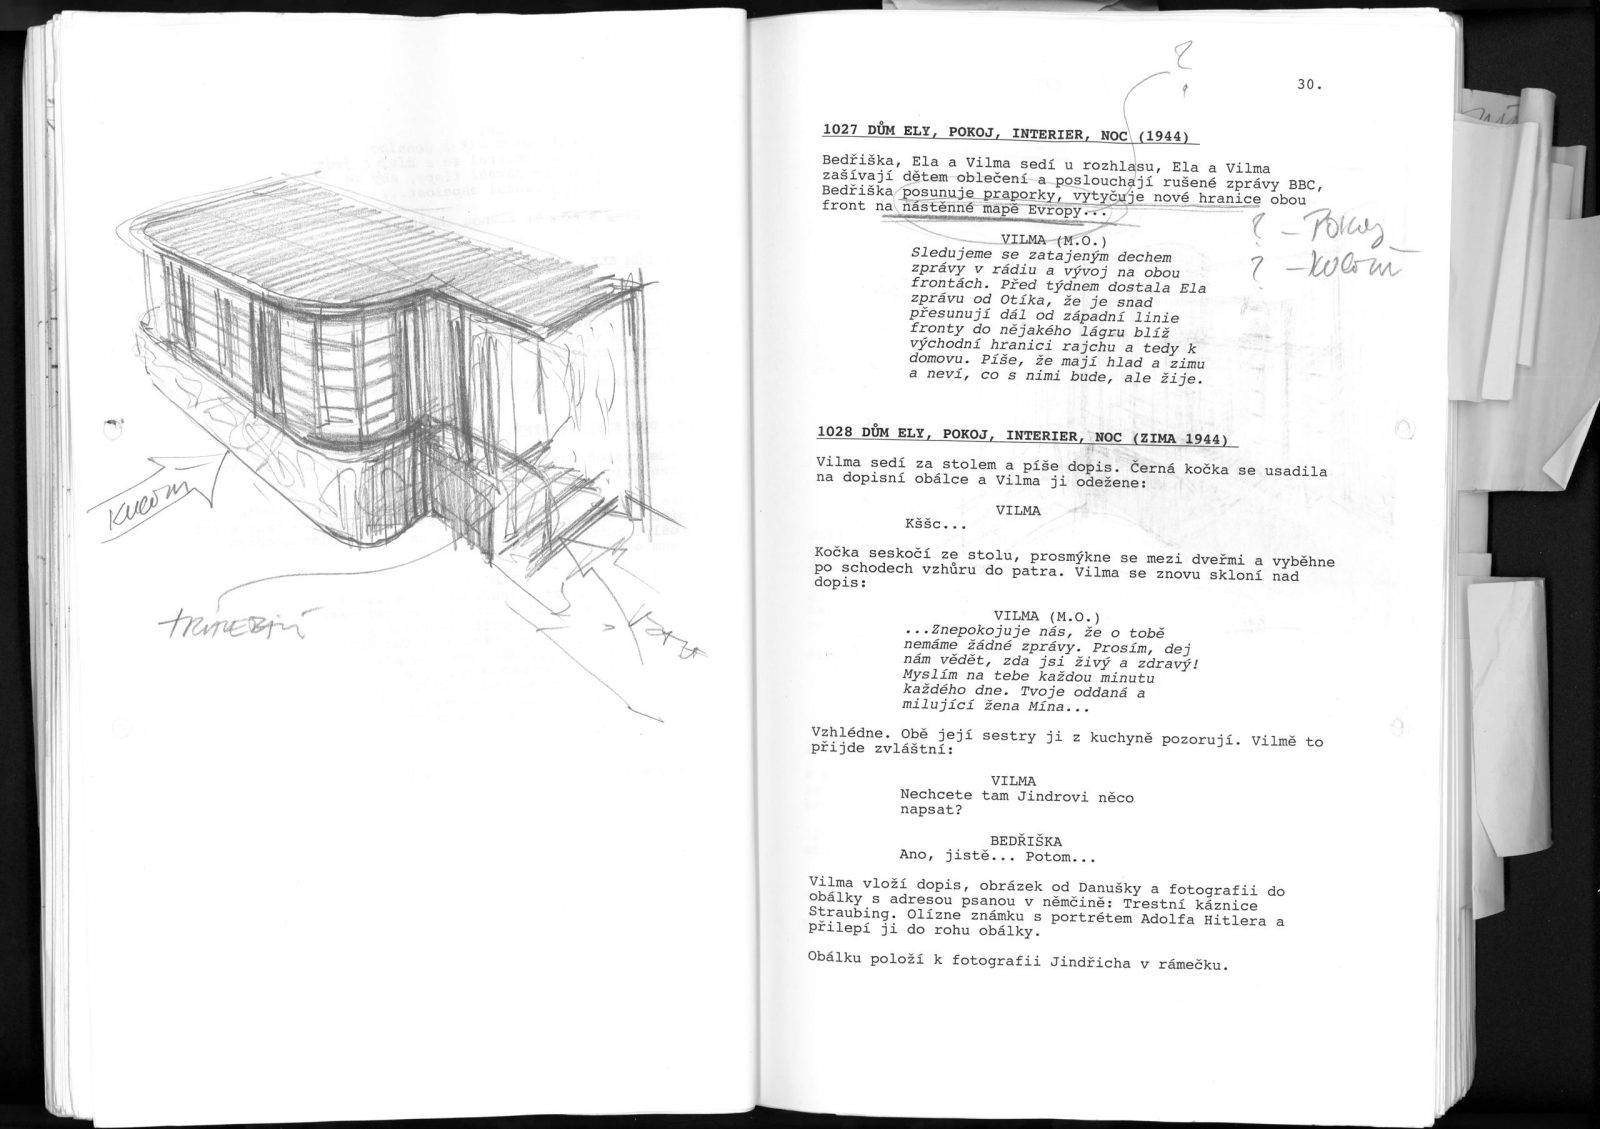 30.
1027 DŮM ELY, POKOJ, INTERIER, NOC (1944)
Bedřiška, Ela a Vilma sedí u rozhlasu, Ela a Vilma
zašívají dětem oblečení a poslouchají rušené zprávy BBC,
Bedřiška posunuje praporky, vytyčuje nové hranice obou
front na nástěnné mapě Evropy...
? - Pokoj
? -
VILMA (M.O.)
Sledujeme se zatajeným dechem
zprávy v rádiu a vývoj na obou
frontách. Před týdnem dostala Ela
zprávu od Otíka, že je snad
přesunují dál od západní linie
fronty do nějakého lágru blíž
východní hranici rajchu a tedy k
domovu. Píše, že mají hlad a zimu
a neví, co s nimi bude, ale žije.
1028 DŮM ELY, POKOJ, INTERIER, NOC (ZIMA 1944)
Vilma sedí za stolem a píše dopis. Černá kočka se usadila
na dopisní obálce a Vilma ji odežene:
VILMA
Kššc...
Kočka seskočí ze stolu, prosmýkne se mezi dveřmi a vyběhne
po schodech vzhůru do patra. Vilma se znovu skloní nad
dopis:
VILMA (M.O.)
...Znepokojuje nás, že o tobě
nemáme žádné zprávy. Prosím, dej
nám vědět, zda jsi živý a zdravý!
Myslím na tebe každou minutu
každého dne. Tvoje oddaná a
milující žena Mína...
Vzhlédne. Obě její sestry ji z kuchyně pozorují. Vilmě to
přijde zvláštní:
VILMA
Nechcete tam Jindrovi něco
napsat?
BEDŘIŠKA
Ano, jistě... Potom...
Vilma vloží dopis, obrázek od Danušky a fotografii do
obálky s adresou psanou v němčině: Trestní káznice
Straubing. Olízne známku s portrétem Adolfa Hitlera a
přilepí ji do rohu obálky.
Obálku položí k fotografii Jindřicha v rámečku.